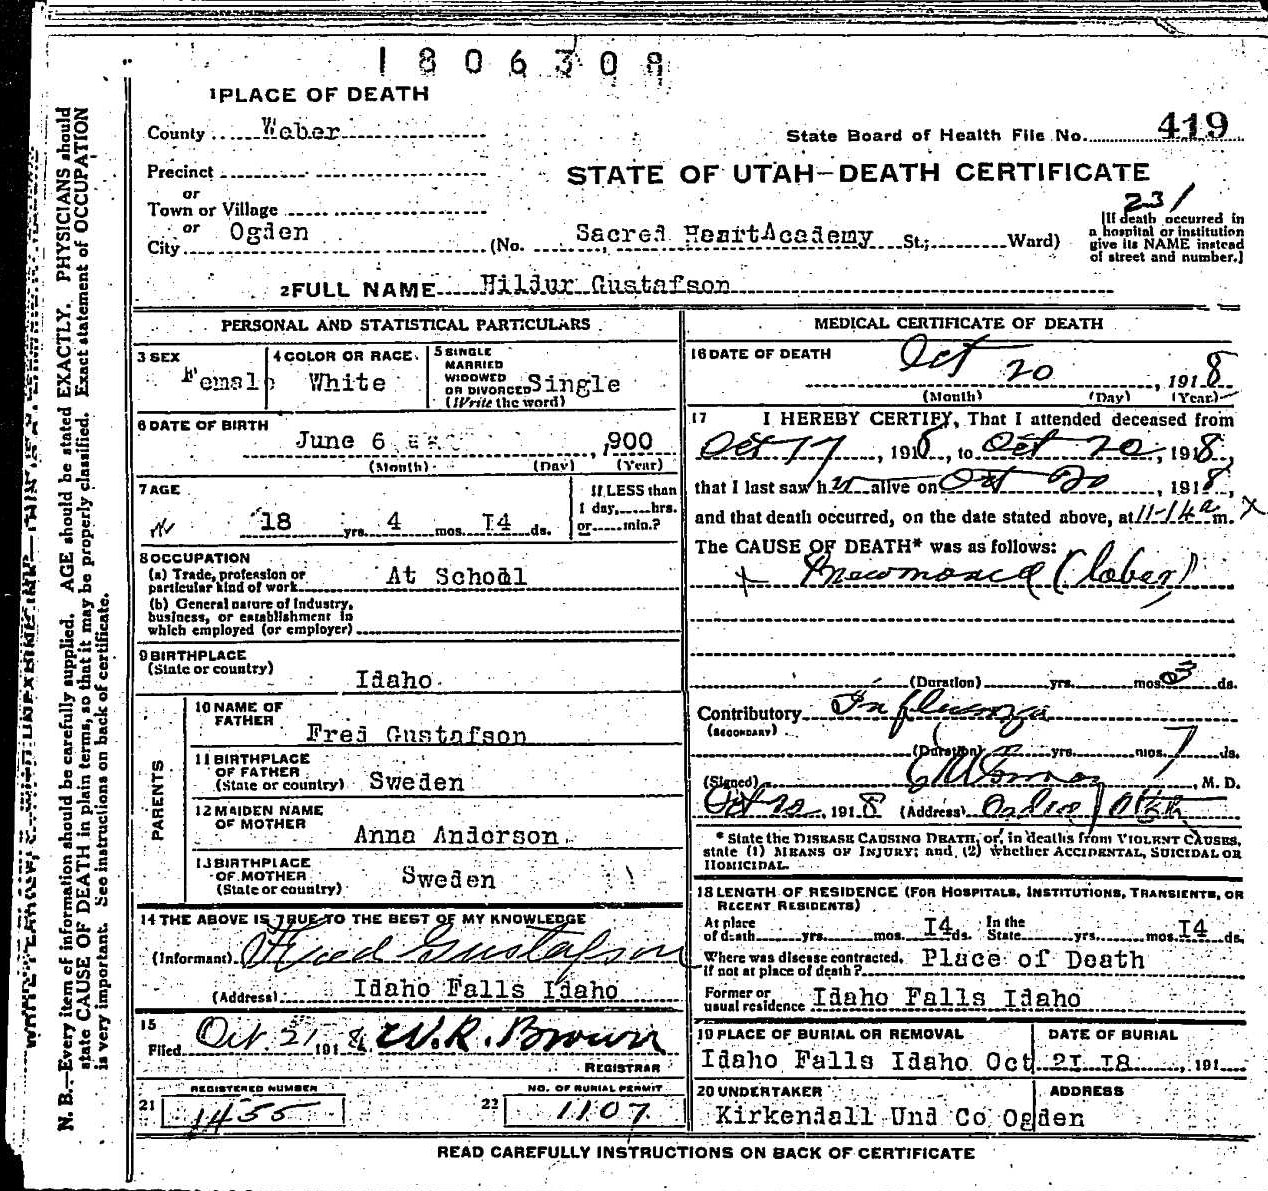 1806308
1 PLACE OF DEATH
County Weber
State Board of Health File No. 419
Precinct
STATE OF UTAH—DEATH CERTIFICATE
or
Town or Village
231
or
City Ogden (No. Sacred Heart Academy St.; Ward)
[If death occurred in
a hospital or institution
give its NAME instead
of street and number.]
2 FULL NAME Hildur Gustafson
PERSONAL AND STATISTICAL PARTICULARS
3 SEX
Female
4 COLOR OR RACE.
White
5 SINGLE
MARRIED
WIDOWED
OR DIVORCED Single
(Write the word)
6 DATE OF BIRTH
June 6 , 1900
(Month) (Day) (Year)
7 AGE
18 yrs. 4 mos. I4 ds.
If LESS than
1 day, hrs.
or min.?
8 OCCUPATION
(a) Trade, profession or
particular kind of work At School
(b) General nature of Industry,
business, or establishment in
which employed (or employer)
9 BIRTHPLACE
(State or country)
Idaho
PARENTS
10 NAME OF
FATHER
Fred Gustafson
11 BIRTHPLACE
OF FATHER
(State or country) Sweden
12 MAIDEN NAME
OF MOTHER
Anna Anderson
13 BIRTHPLACE
OF MOTHER
(State or country) Sweden
14 THE ABOVE IS TRUE TO THE BEST OF MY KNOWLEDGE
(Informant) Fred Gustafson
(Address) Idaho Falls Idaho
15
Filed Oct. 21 1918 W. R. Brown
REGISTRAR
REGISTERED NUMBER
21 1455
NO. OF BURIAL PERMIT
22 1107
MEDICAL CERTIFICATE OF DEATH
16 DATE OF DEATH
Oct 20 , 1918
(Month) (Day) (Year)
17 I HEREBY CERTIFY, That I attended deceased from
Oct 17 , 1918, to Oct 20, 1918,
that I last saw her alive on Oct 20 , 1918,
and that death occurred, on the date stated above, at 11-14 a m. x
The CAUSE OF DEATH* was as follows:
Pneumonia (lobar)
(Duration) yrs. mos. 03 ds.
Contributory Influenza
(SECONDARY)
(Duration) yrs. mos. 7 ds.
(Signed) , M. D.
Oct 20, 1918 (Address) Ogden Utah
* State the DISEASE CAUSING DEATH, or, in deaths from VIOLENT CAUSES,
state (1) MEANS OF INJURY; and (2) whether ACCIDENTAL, SUICIDAL OR
HOMICIDAL.
18 LENGTH OF RESIDENCE (FOR HOSPITALS, INSTITUTIONS, TRANSIENTS, OR
RECENT RESIDENTS)
At place
of death yrs. mos. I4 ds.
In the
State yrs. mos. I4 ds.
Where was disease contracted,
If not at place of death? Place of Death
Former or
usual residence Idaho Falls Idaho
19 PLACE OF BURIAL OR REMOVAL
Idaho Falls Idaho
DATE OF BURIAL
Oct 2I I8 , 191
20 UNDERTAKER
Kirkendall Und Co
ADDRESS
Ogden
READ CAREFULLY INSTRUCTIONS ON BACK OF CERTIFICATE
N. B.—Every item of information should be carefully supplied. AGE should be stated EXACTLY. PHYSICIANS should
state CAUSE OF DEATH in plain terms, so that it may be properly classified. Exact statement of OCCUPATION
is very important. See instructions on back of certificate.